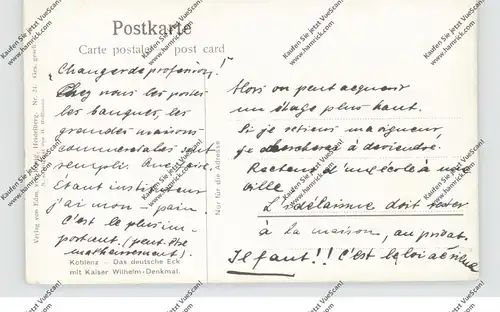 Postkarte
Carte postale post card
„Changer de profession!"
Chez nous les postes
les banques, les
grandes maisons
commerciales sont
rempli.
Étant instituteur
j'ai mon pain
C'est le plus im-
portant (peut-être
malheureusement).
Koblenz - Das deutsche Eck
mit Kaiser Wilhelm-Denkmal.
Nur für die Adresse
Verlag von Edm. Heidelberg. Nr. 21. Ges. gesch.
Alors on peut acquérir
un étage plus haut.
Si je retiens ma vigueur,
je chercherai à devenir
Recteur d'une école à une
ville
L'idéalisme doit rester
à la maison, au privat.
Il faut!! C'est la loi
Kaufen Sie jetzt VueScan!
www.hamrick.com